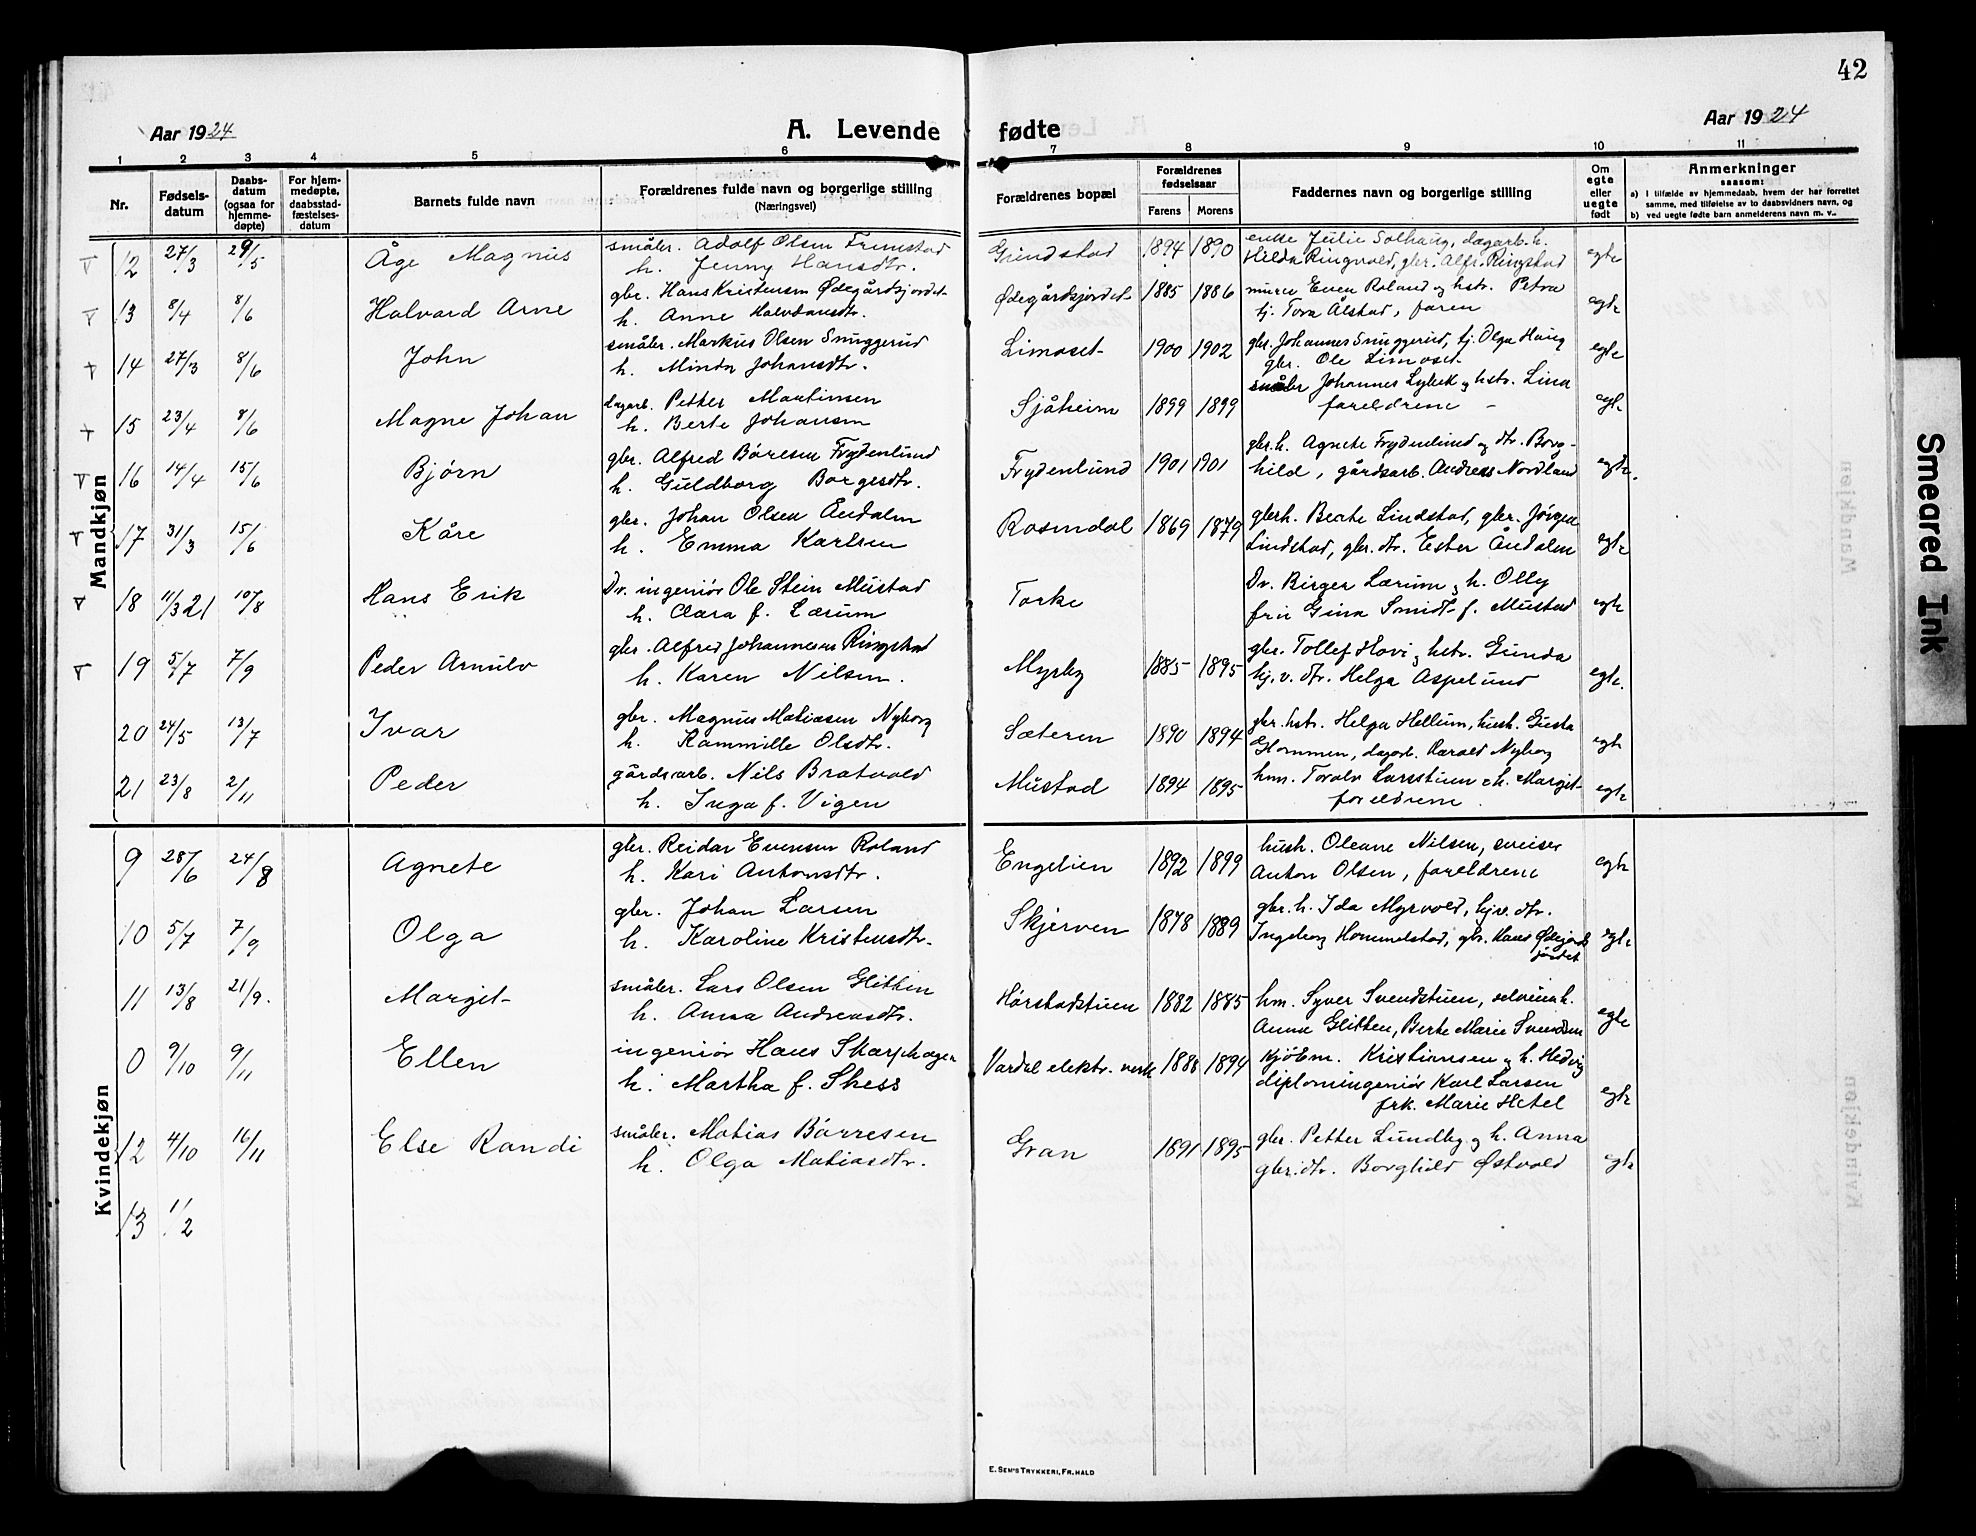 42
Aar 1924
A. Levende fødte
Aar 1924
1 2 3 4 5 6 7 8 9 10 11
Nr.
Fødsels-
datum
Daabs-
datum
(ogsaa for
hjemme-
døpte)
For hjem-
medøpte,
daabsstad-
fæstelses-
datum
Barnets fulde navn
Forældrenes fulde navn og borgerlige stilling
(Næringsvei)
Forældrenes bopæl
Forældrenes
fødselsaar
Farens Morens
Faddernes navn og borgerlige stilling
Om
egte
eller
uegte
født
Anmerkninger
saasom:
a) I tilfælde av hjemmedaab, hvem der har forrettet
samme, med tilføielse av to daabsvidners navn, og
b) ved uegte fødte barn anmelderens navn m. v..
Mandkjøn
12 27/3 29/5 Åge Magnus
småbr. Adolf Olsen Fremstad
h. Jenny Hansdtr.
Grindstad 1894 1890
enke Julie Solhaug, dagarb. h.
Hilda Ringvold, gbr. Alfr. Ringstad
egte
13 8/4 8/6 Halvard Arne
gbr. Hans Kristensen Ødegårdsjordet
h. Anne Halvdansdtr.
Ødegårdsjordet 1885 1886
murer Even Roland og hstr. Petra
tj. Tora Ålstad, faren
egte
14 27/3 8/6 John
småbr. Markus Olsen Snuggerud
h. Minda Johansdtr.
Limoset 1900 1902
gbr. Johannes Snuggerud, tj. Olga Haug
gbr. Ole Limoset
egte
15 23/4 8/6 Magne Johan
dagarb. Petter Martinsen
h. Berte Johansen
Sjåheim 1899 1899
småbr Johannes Lybek og hstr. Lina
foreldrene
egte
16 14/4 15/6 Bjørn
gbr. Alfred Børesen Frydenlund
h. Guldborg Borgesdtr.
Frydenlund 1901 1901
gbr. h. Agnete Frydenlund og dtr. Borg-
hild, gårdsarb. Andreas Nordland
egte.
17 31/3 15/6 Kåre
gbr. Johan Olsen Åndalen
h. Emma Karlsen
Rosendal 1869 1879
gbrh. Berte Lindstad, gbr. Jörgen
Lindstad, gbr. dtr. Ester Åndalen
egte
18 11/3 21 10/8 Hans Erik
Dr. ingeniör Ole Stein Mustad
h. Clara f. Lærum
Torke
Dr. Birger Lærum og h. Olly
frú Gina Smidt f. Mustad
egte
19 5/7 7/9 Peder Arnulv
gbr. Alfred Johannesen Ringstad
h. Karen Nilsen.
Myrby 1885 1895
gbr. Tollef Hovi og hstr. Gunda
hj. v. dtr. Helga Aspelund
egte.
20 24/5 13/7 Ivar
gbr. Magnus Matiasen Nyborg
h. Kammille Olsdtr.
Sæteren 1890 1894
gbr. hstr. Helga Hellum, hush. Gusta
Glommen, dagarb. Harald Nyborg
egte
21 23/8 2/11 Peder
gårdsarb. Nils Bratvold
h. Inga f. Vigen
Mustad 1894 1895
hm. Toralv Larsstuen og h. Margit
foreldrene
egte
Kvindekjøn
9 28/6 24/8 Agnete
gbr. Reidar Evensen Roland
h. Kari Antonsdtr.
Engelien 1892 1899
hush. Oleane Nilsen, sveiser
Anton Olsen, foreldrene
egte
10 5/7 7/9 Olga
gbr. Johan Larsen
h. Karoline Kristensdtr.
Skjerven 1878 1889
gbr. h. Ida Myrvold, hjv. dtr.
Ingeborg Hommelstad, gbr. Hans Ødegårds
jordet
egte
11 13/8 21/9. Margit
småbr. Lars Olsen Glitten
h. Anna Andreasdtr.
Hørstadstuen 1882 1885
hm. Syver Svendstuen, h.
Anna Glitten, Berte Marie Svendsen
egte
0 9/10 9/11 Ellen
ingeniör Hans Skarphagen
h. Martha f. Skess
Vardal elektr. verk 1888 1894
kjöbm. Kristiansen og h. Hedvig
diplomingeniör Karl Larsen
frk. Marie Hetel
egte
12 4/10 16/11 Else Randi
småbr. Matias Börresen
h. Olga Matiasdtr.
Gran 1891 1895
gbr. Petter Lundby og h. Anna
gbr. dtr. Borghild Østvold
egte
13 1/2
E. SEM'S TRYKKERI, FR.HALD
Smeared Ink